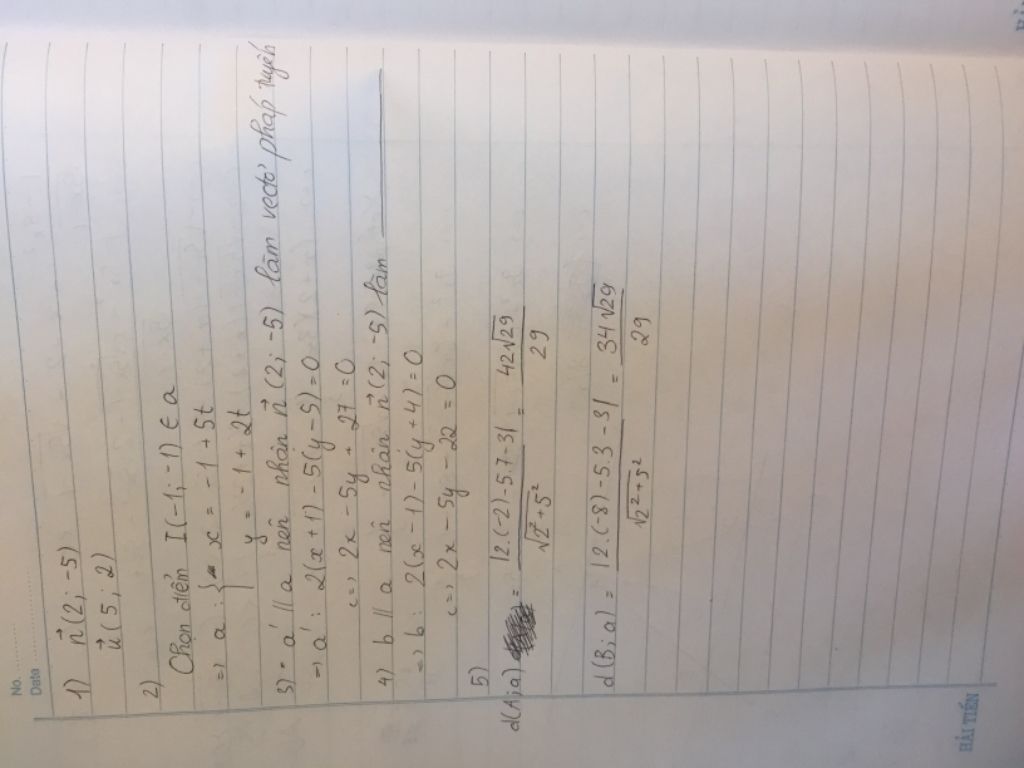 No. ............
Data ......................
1) n⃗(2; -5)
u⃗(5; 2)
2)
Chọn điểm I(-1; -1) ∈ a
=> a: { x = -1 + 5t
y = -1 + 2t
3) a' // a nên nhận n⃗(2; -5) làm vectơ pháp tuyến
=> a': 2(x+1) - 5(y-5) = 0
<=> 2x - 5y + 27 = 0
4) b // a nên nhận n⃗(2; -5) làm
=> b: 2(x-1) - 5(y+4) = 0
<=> 2x - 5y - 22 = 0
5)
d(A; a) = |2.(-2) - 5.7 - 3| / √2²+5² = 42√29 / 29
d(B; a) = |2.(-8) - 5.3 - 3| / √2²+5² = 34√29 / 29
HẢI TIẾN